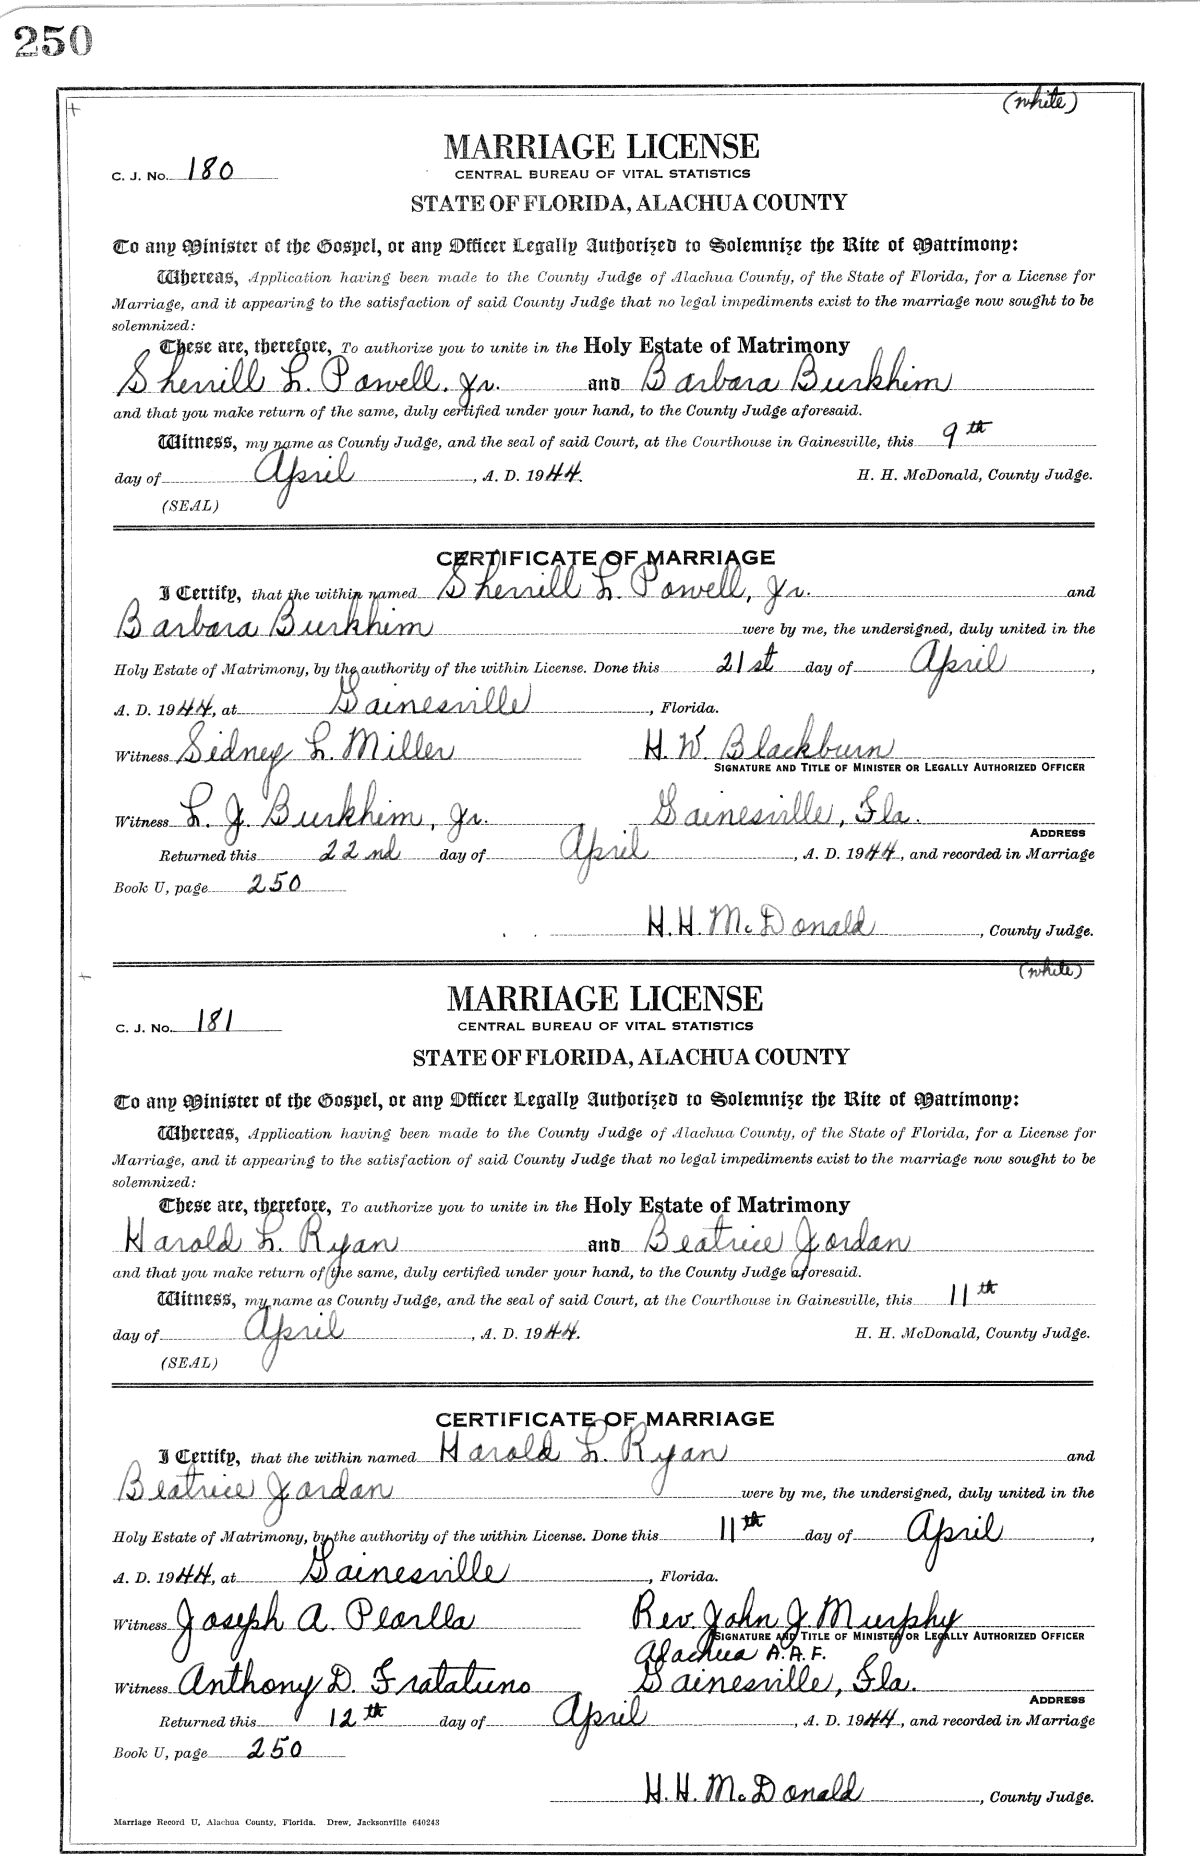 250
(white)
MARRIAGE LICENSE
C. J. No. 180
CENTRAL BUREAU OF VITAL STATISTICS
STATE OF FLORIDA, ALACHUA COUNTY
To any Minister of the Gospel, or any Officer Legally Authorized to Solemnize the Rite of Matrimony:
Whereas, Application having been made to the County Judge of Alachua County, of the State of Florida, for a License for
Marriage, and it appearing to the satisfaction of said County Judge that no legal impediments exist to the marriage now sought to be
solemnized:
These are, therefore, To authorize you to unite in the Holy Estate of Matrimony
Sherrill L. Powell, Jr. and Barbara Burkhim
and that you make return of the same, duly certified under your hand, to the County Judge aforesaid.
Witness, my name as County Judge, and the seal of said Court, at the Courthouse in Gainesville, this 9th
day of April, A. D. 1944. H. H. McDonald, County Judge.
(SEAL)
CERTIFICATE OF MARRIAGE
I Certify, that the within named Sherrill L. Powell, Jr. and
Barbara Burkhim were by me, the undersigned, duly united in the
Holy Estate of Matrimony, by the authority of the within License. Done this 21st day of April,
A. D. 1944, at Gainesville, Florida.
Witness Sidney L. Miller H. W. Blackburn
SIGNATURE AND TITLE OF MINISTER OR LEGALLY AUTHORIZED OFFICER
Witness L. J. Burkhim, Jr. Gainesville, Fla.
ADDRESS
Returned this 22nd day of April, A. D. 1944, and recorded in Marriage
Book U, page 250
H. H. McDonald, County Judge.
(white)
MARRIAGE LICENSE
C. J. No. 181
CENTRAL BUREAU OF VITAL STATISTICS
STATE OF FLORIDA, ALACHUA COUNTY
To any Minister of the Gospel, or any Officer Legally Authorized to Solemnize the Rite of Matrimony:
Whereas, Application having been made to the County Judge of Alachua County, of the State of Florida, for a License for
Marriage, and it appearing to the satisfaction of said County Judge that no legal impediments exist to the marriage now sought to be
solemnized:
These are, therefore, To authorize you to unite in the Holy Estate of Matrimony
Harold L. Ryan and Beatrice Jordan
and that you make return of the same, duly certified under your hand, to the County Judge aforesaid.
Witness, my name as County Judge, and the seal of said Court, at the Courthouse in Gainesville, this 11th
day of April, A. D. 1944. H. H. McDonald, County Judge.
(SEAL)
CERTIFICATE OF MARRIAGE
I Certify, that the within named Harold L. Ryan and
Beatrice Jordan were by me, the undersigned, duly united in the
Holy Estate of Matrimony, by the authority of the within License. Done this 11th day of April,
A. D. 1944, at Gainesville, Florida.
Witness Joseph A. Pearlla Rev. John J. Murphy
SIGNATURE AND TITLE OF MINISTER OR LEGALLY AUTHORIZED OFFICER
Alachua A.A.F.
Witness Anthony D. Fratatuno Gainesville, Fla.
ADDRESS
Returned this 12th day of April, A. D. 1944, and recorded in Marriage
Book U, page 250
H. H. McDonald, County Judge.
Marriage Record U, Alachua County, Florida. Drew, Jacksonville 640243